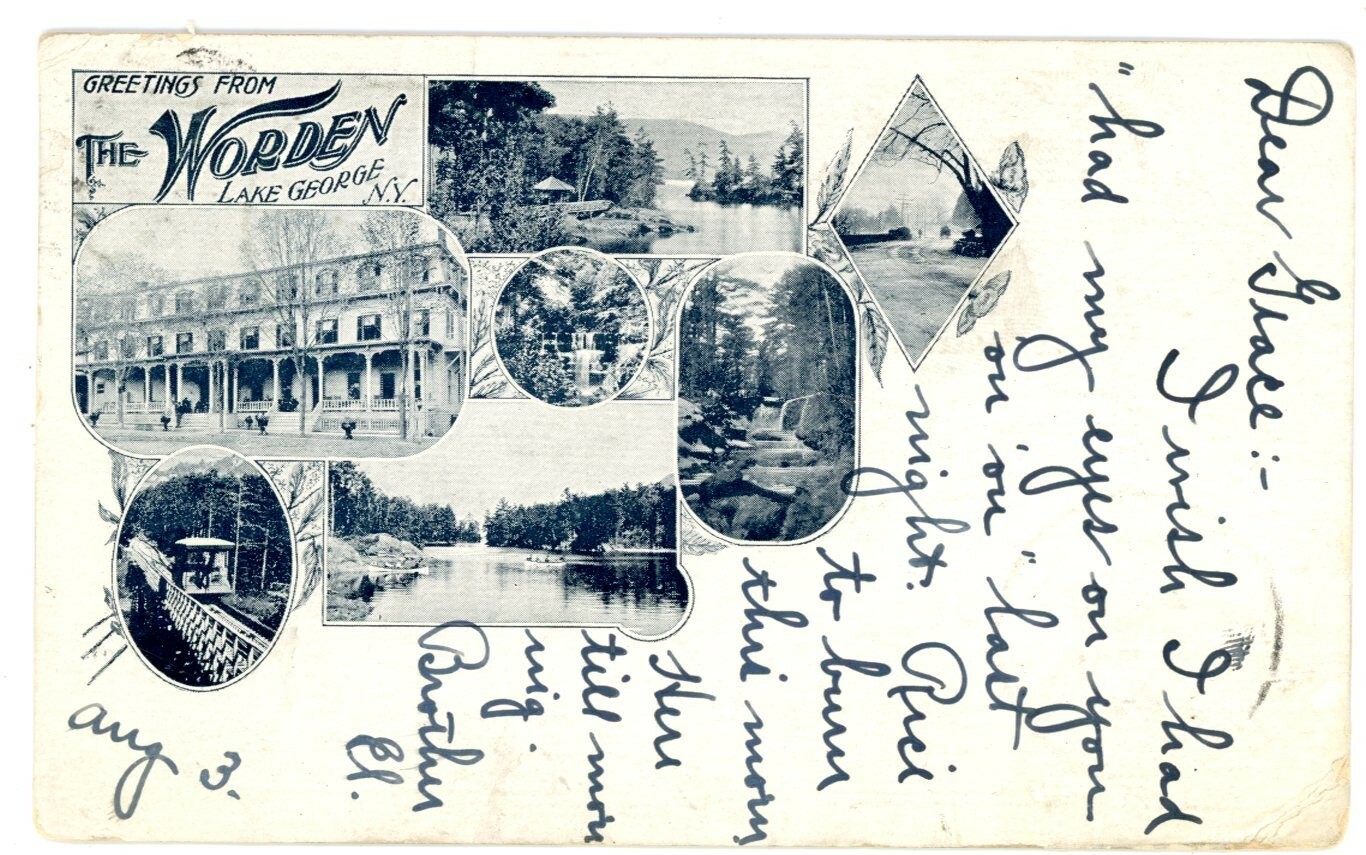 GREETINGS FROM
THE WORDEN
LAKE GEORGE
N.Y.
Dear Grace:-
I wish I had
"had my eyes on you
on, on" last
night. Rice
to burn
this morn
Here
till morn
ing.
Brother
El.
Aug 3.